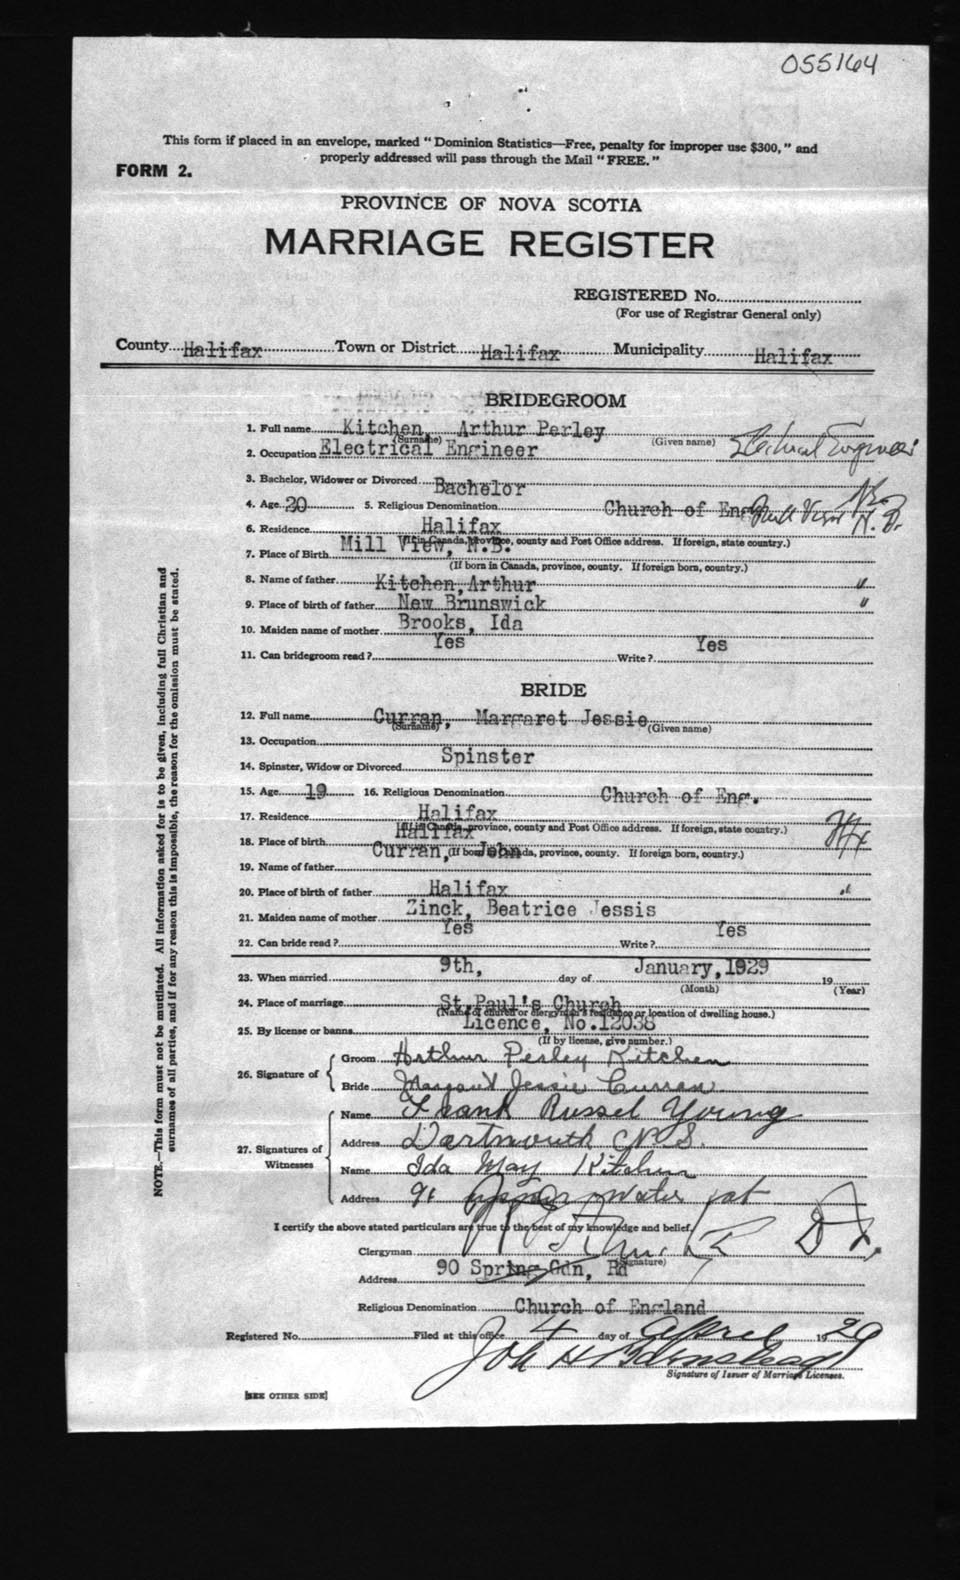 055164
This form if placed in an envelope, marked "Dominion Statistics—Free, penalty for improper use $300," and
properly addressed will pass through the Mail "FREE."
FORM 2.
PROVINCE OF NOVA SCOTIA
MARRIAGE REGISTER
REGISTERED No.
(For use of Registrar General only)
County Halifax Town or District Halifax Municipality Halifax
BRIDEGROOM
1. Full name Kitchen, Arthur Perley
(Surname) (Given name)
2. Occupation Electrical Engineer Electrical Engineer
3. Bachelor, Widower or Divorced Bachelor
4. Age 20 5. Religious Denomination Church of Eng
Mill View N. B.
6. Residence Halifax
(If in Canada, province, county and Post Office address. If foreign, state country.)
7. Place of Birth Mill View, N.B.
(If born in Canada, province, county. If foreign born, country.)
8. Name of father Kitchen, Arthur "
9. Place of birth of father New Brunswick "
10. Maiden name of mother Brooks, Ida
11. Can bridegroom read? Yes Write? Yes
BRIDE
12. Full name Curran, Margaret Jessie
(Surname) (Given name)
13. Occupation
14. Spinster, Widow or Divorced Spinster
15. Age 19 16. Religious Denomination Church of Eng.
17. Residence Halifax
(If in Canada, province, county and Post Office address. If foreign, state country.)
18. Place of birth Halifax Hfx
(If born in Canada, province, county. If foreign born, country.)
19. Name of father Curran, John
20. Place of birth of father Halifax "
21. Maiden name of mother Zinck, Beatrice Jessis
22. Can bride read? Yes Write? Yes
23. When married 9th, day of January, 1929 19
(Month) (Year)
24. Place of marriage St. Paul's Church
(Name of church or clergyman's residence or location of dwelling house.)
25. By license or banns Licence, No. 12038
(If by license, give number.)
26. Signature of
Groom Arthur Perley Kitchen
Bride Margaret Jessie Curran
27. Signatures of Witnesses
Name Frank Russel Young
Address Dartmouth N.S.
Name Ida May Kitchen
Address 91 Upper Water
I certify the above stated particulars are true to the best of my knowledge and belief.
Clergyman
(Signature)
Address 90 Spring Gdn, Rd
Religious Denomination Church of England
Registered No. Filed at this office 4 day of April 1929
Signature of Issuer of Marriage Licenses.
[SEE OTHER SIDE]
NOTE.—This form must not be mutilated. All information asked for is to be given, including full Christian and
surnames of all parties, and if for any reason this is impossible, the reason for the omission must be stated.